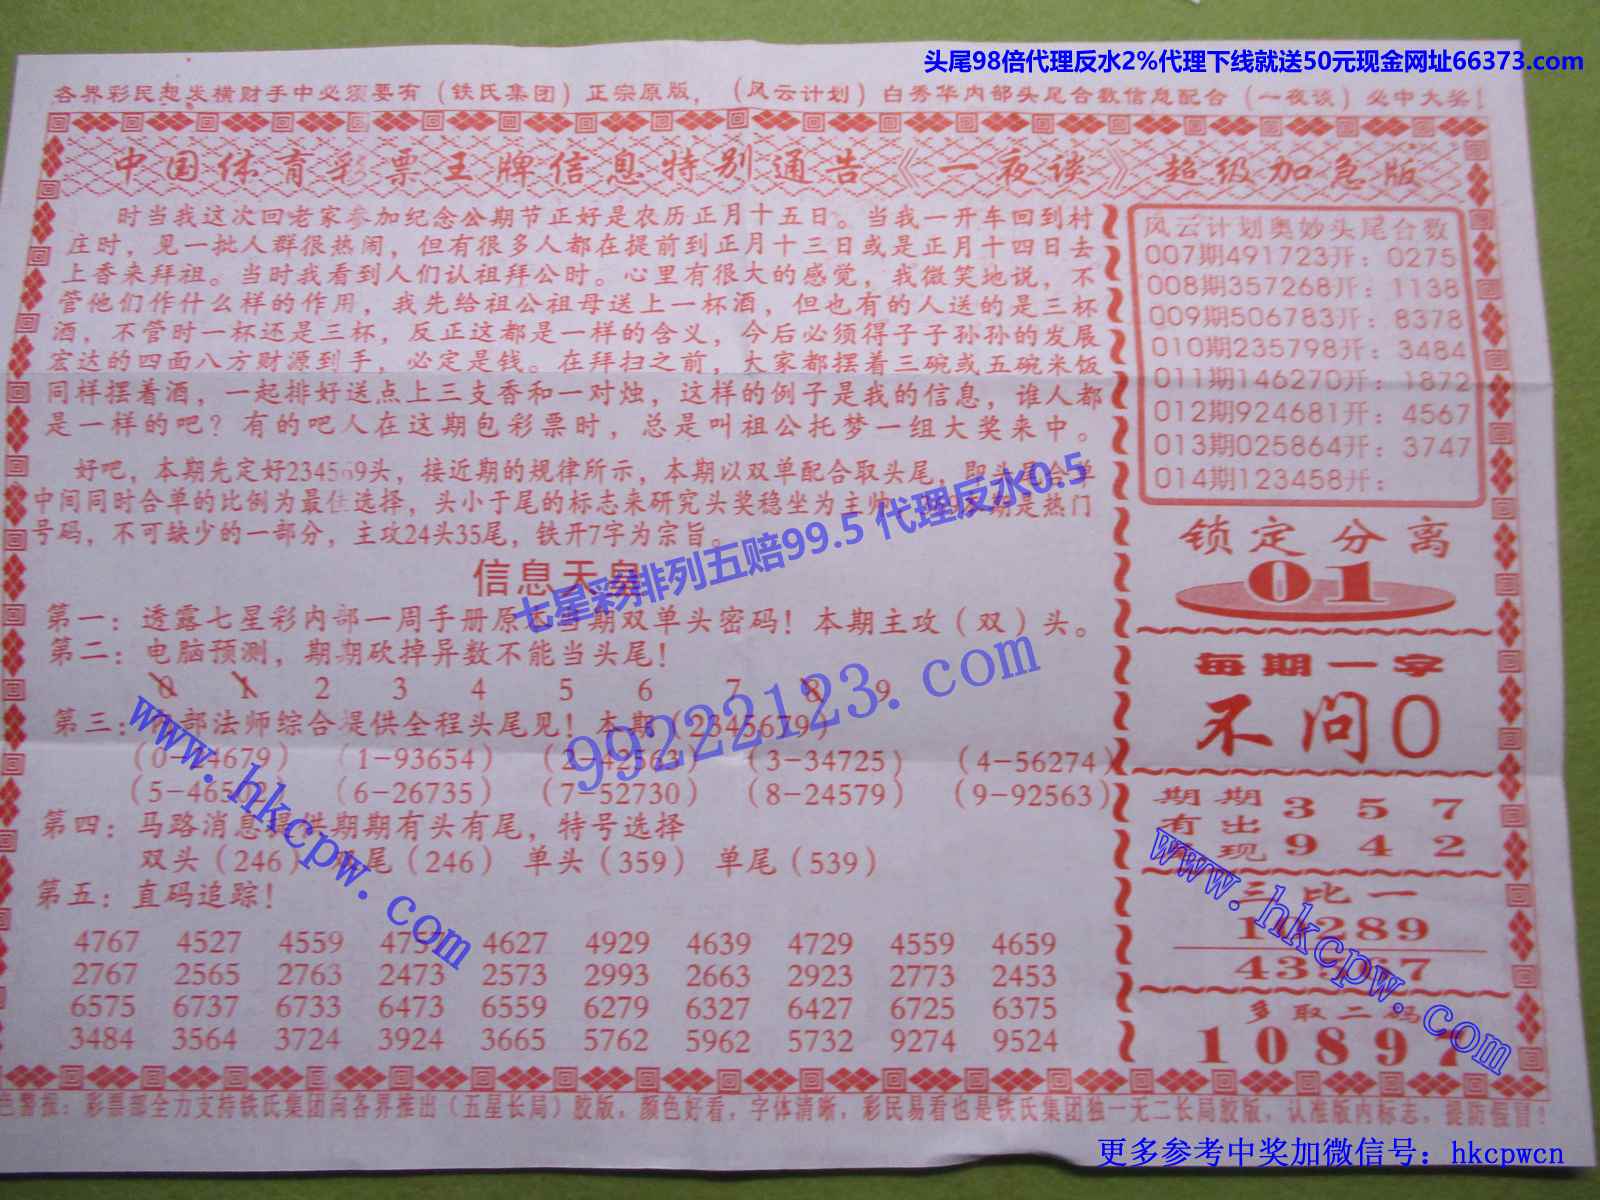 头尾98倍代理反水2%代理下线就送50元现金网址66373.com
各界彩民想发横财手中必须要有（铁氏集团）正宗原版，（风云计划）白秀华内部头尾合数信息配合（一夜谈）必中大奖！
中国体育彩票王牌信息特别通告《一夜谈》超级加急版
时当我这次回老家参加纪念公期节正好是农历正月十五日。当我一开车回到村
庄时，见一批人群很热闹，但有很多人都在提前到正月十三日或是正月十四日去
上香来拜祖。当时我看到人们认祖拜公时。心里有很大的感觉，我微笑地说，不
管他们作什么样的作用，我先给祖公祖母送上一杯酒，但也有的人送的是三杯
酒，不管时一杯还是三杯，反正这都是一样的含义，今后必须得子子孙孙的发展
宏达的四面八方财源到手，必定是钱。在拜扫之前，大家都摆着三碗或五碗米饭
同样摆着酒，一起排好送点上三支香和一对烛，这样的例子是我的信息，谁人都
是一样的吧？有的吧人在这期包彩票时，总是叫祖公托梦一组大奖来中。
好吧，本期先定好234569头，接近期的规律所示，本期以双单配合取头尾，即头尾合单
中间同时合单的比例为最佳选择，头小于尾的标志来研究头奖稳坐为主帅，期是热门
号码，不可缺少的一部分，主攻24头35尾，铁开7字为宗旨。
信息天
第一：透露七星彩内部一周手册原期双单头密码！本期主攻（双）头。
第二：电脑预测，期期砍掉异数不能当头尾！
0 1 2 3 4 5 6 7 8 9
第三：部法师综合提供全程头尾见！本期（2345679）
4679） （1-93654） （2-42563） （3-34725） （4-56274）
（5-465 （6-26735） （7-52730） （8-24579） （9-92563）
第四：马路消息提供期期有头有尾，特号选择
双头（246） 尾（246） 单头（359） 单尾（539）
第五：直码追踪！
4767 4527 4559 4639 4627 4929 4639 4729 4559 4659
2767 2565 2763 2473 2573 2993 2663 2923 2773 2453
6575 6737 6733 6473 6559 6279 6327 6427 6725 6375
3484 3564 3724 3924 3665 5762 5962 5732 9274 9524
风云计划奥妙头尾合数
007期491723开：0275
008期357268开：1138
009期506783开：8378
010期235798开：3484
011期146270开：1872
012期924681开：4567
013期025864开：3747
014期123458开：
锁定分离
01
每期一字
不问0
期期 3 5 7
有出
现 9 4 2
三比一
289
43 7
多取二码
10897
色警报：彩票部全力支持铁氏集团向各界推出（五星长局）胶版，颜色好看，字体清晰，彩民易看也是铁氏集团独一无二长局胶版，认准版内标志，提防假冒！
七星彩排列五赔99.5 代理反水0.5
99222123.com
www.hkcpw.com
www.hkcpw.com
更多参考中奖加微信号：hkcpwcn